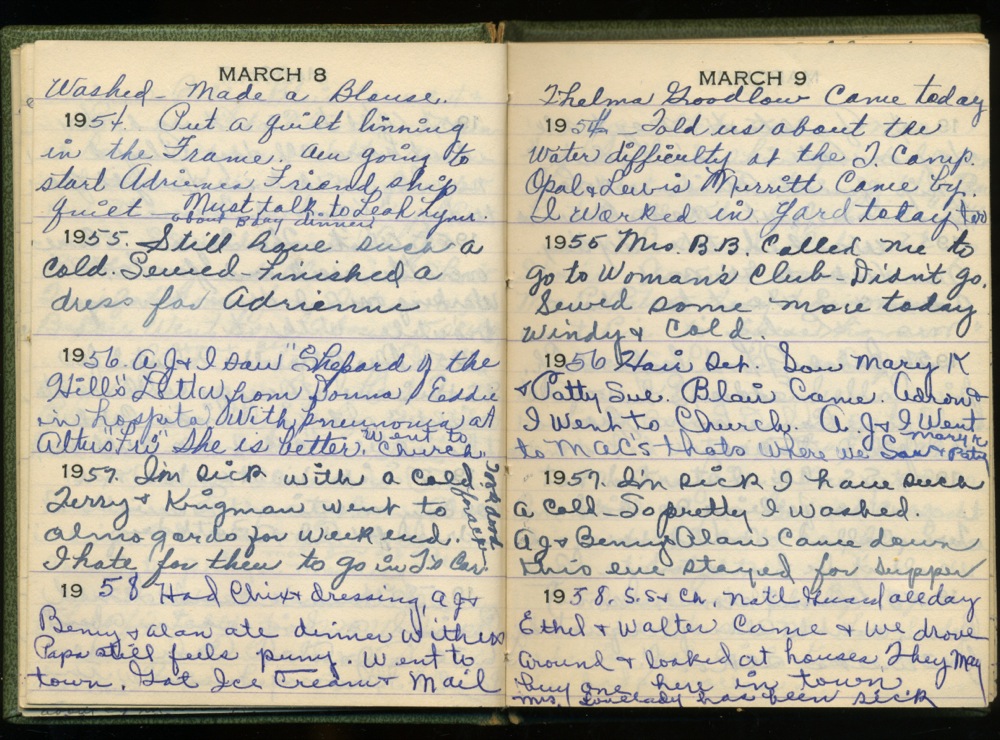 MARCH 8
Washed - Made a Blouse.
1954. Put a quilt linning
in the Frame. Am going to
start Adriennes Friend ship
quiet - Must talk to Leah Lynn.
about B day dinner
1955. Still have such a
cold. Sewed - Finished a
dress for Adrienne
1956. A J & I saw "Shepard of the
Hills" Letter from Donna! Eddie
in hospital With pneumonia at
Altus "Fri" She is better. Went to
Church
1957. I'm sick with a cold
Terry & Kingman went to
almogordo for weekend.
I hate for them to go in J's Car
Took
1958 Had Chix & dressing, A J &
Benny & Alan ate dinner with us
Papa still feels puny. Went to
town. Got Ice Cream & Mail
MARCH 9
Thelma Goodlow Came today
1954 - Told us about the
Water difficulty at the T. Camp.
Opal & Lewis Merritt Came by.
I worked in yard today too
1955 Mrs. B.B. Called me to
go to Woman's Club - Didn't go.
Sewed some more today
Windy & Cold.
1956 Hair Set. Saw Mary K
& Patty Sue. Blair Came. Adron &
I Went to Church. A. J. & I Went
to MAC's thats where we Saw Mary K
& Patty
1957. I'm sick I have such
a cold - So pretty I washed.
A J & Benny & Alan Came down
this eve stayed for supper
1958. S.S. & Ch. Natl Guard all day
Ethel & Walter Came & we drove
around & looked at houses, They may
buy one here in town
Mrs. Lovelady has been sick